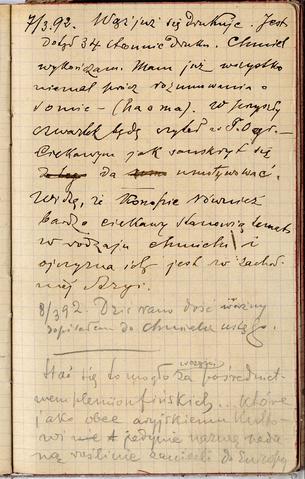 7/3.92. Wąż już się drukuje. Jest
dotąd 34 stronnic druku. Chmiel
wykończam. Mam już wszystko
niemal prócz rozumowania o
somie – (haoma). W przyszły
czwartek będę czytał w T. Ogr.
Ciekawym jak sanskryt się
da umotywować.
Widzę, że Konopie również
bardzo ciekawy stanowią temat
w rodzaju chmielu i
ojczyzna ich jest w zachod
niej Azyi.
8/392. Dziś rano dość
dopisałem do chmielu
Stać się to mogło za pośrednict
wem plemion fińskich, które
jako obce aryjskiemu
wi jedynie nazwę nada
ną roślinie zaniosły do Europy